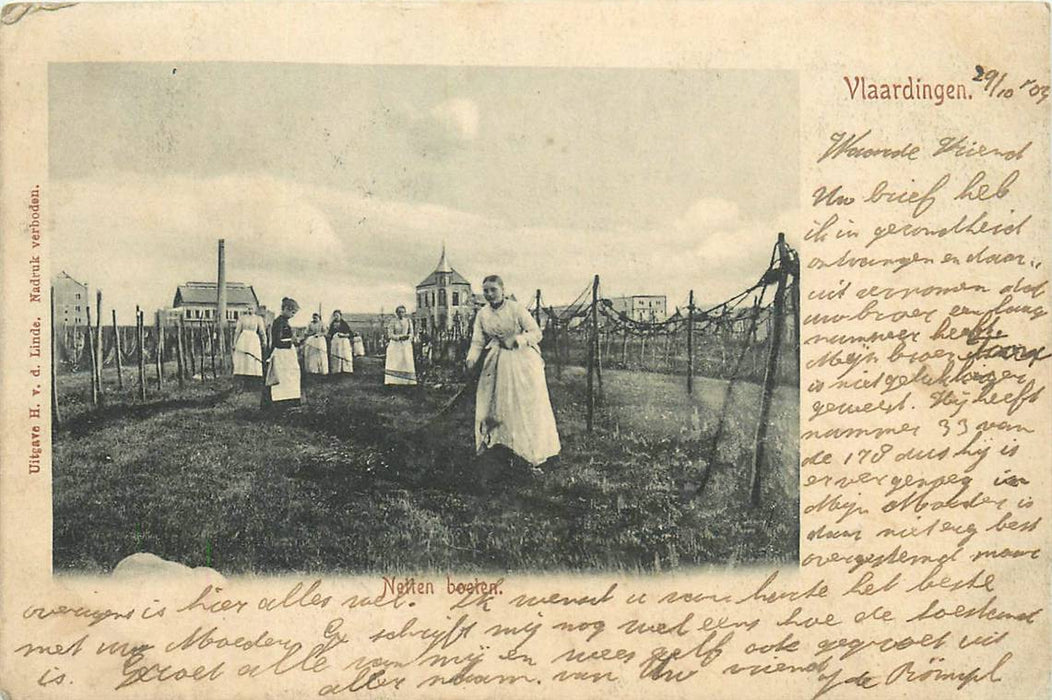 Vlaardingen. 29/10 '03
Waarde Vriend
Uw brief heb
ik in gezondheid
ontvangen en daar„
uit vernomen dat
uw broer een laag
nummer heeft
Mijn broer
is niet gelukkiger
geweest. Hij heeft
nummer 33 van
de 178 dus hij is
er ver genoeg in
Mijn Moeder is
daar niet erg best
over gestemd maar
overigens is hier alles wel. Ik wensch u van harte het beste
met uw Moeder. En schrijft mij nog wel eens hoe de toestand
is. Groet alle van mij en wees zelf ook gegroet uit
aller naam. van Uw vriend
Netten boeten.
Uitgave H. v. d. Linde. Nadruk verboden.